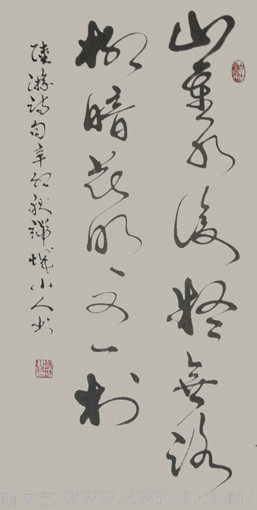 山重水復疑無路
柳暗花明又一村
陸游詩句辛卯秋
小人书